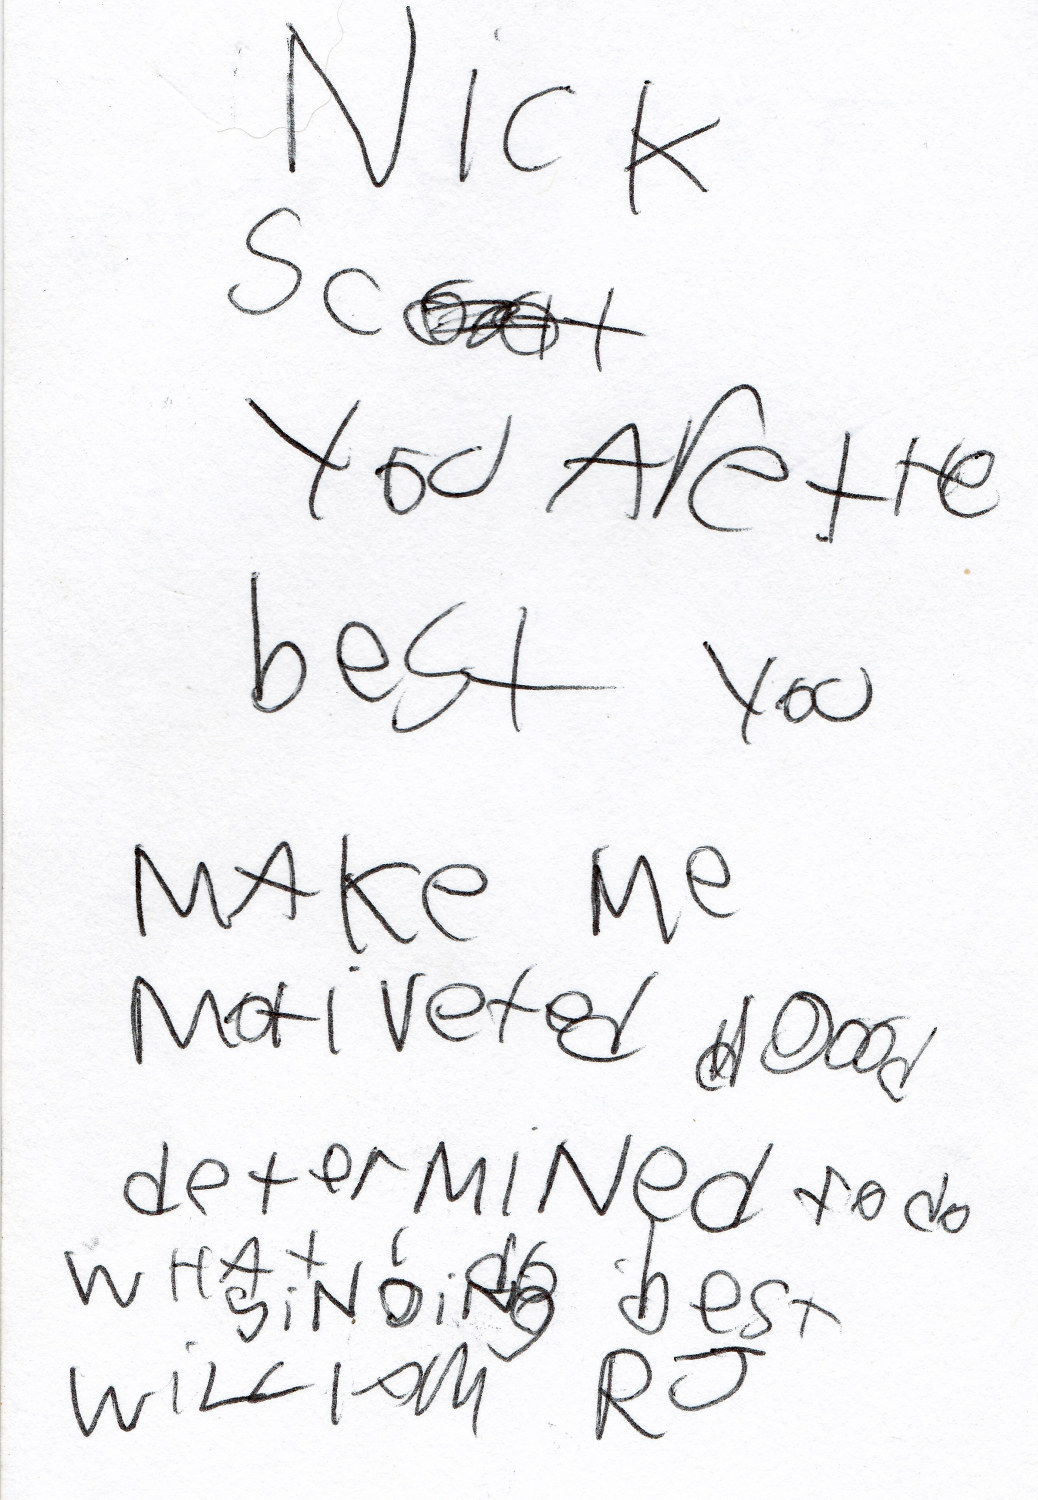 Nick
Scott
You Are tHe
best you
MAKe Me
Motiveted
determiNed to do
WHAt i do best
SiNging
WilliAM RJ